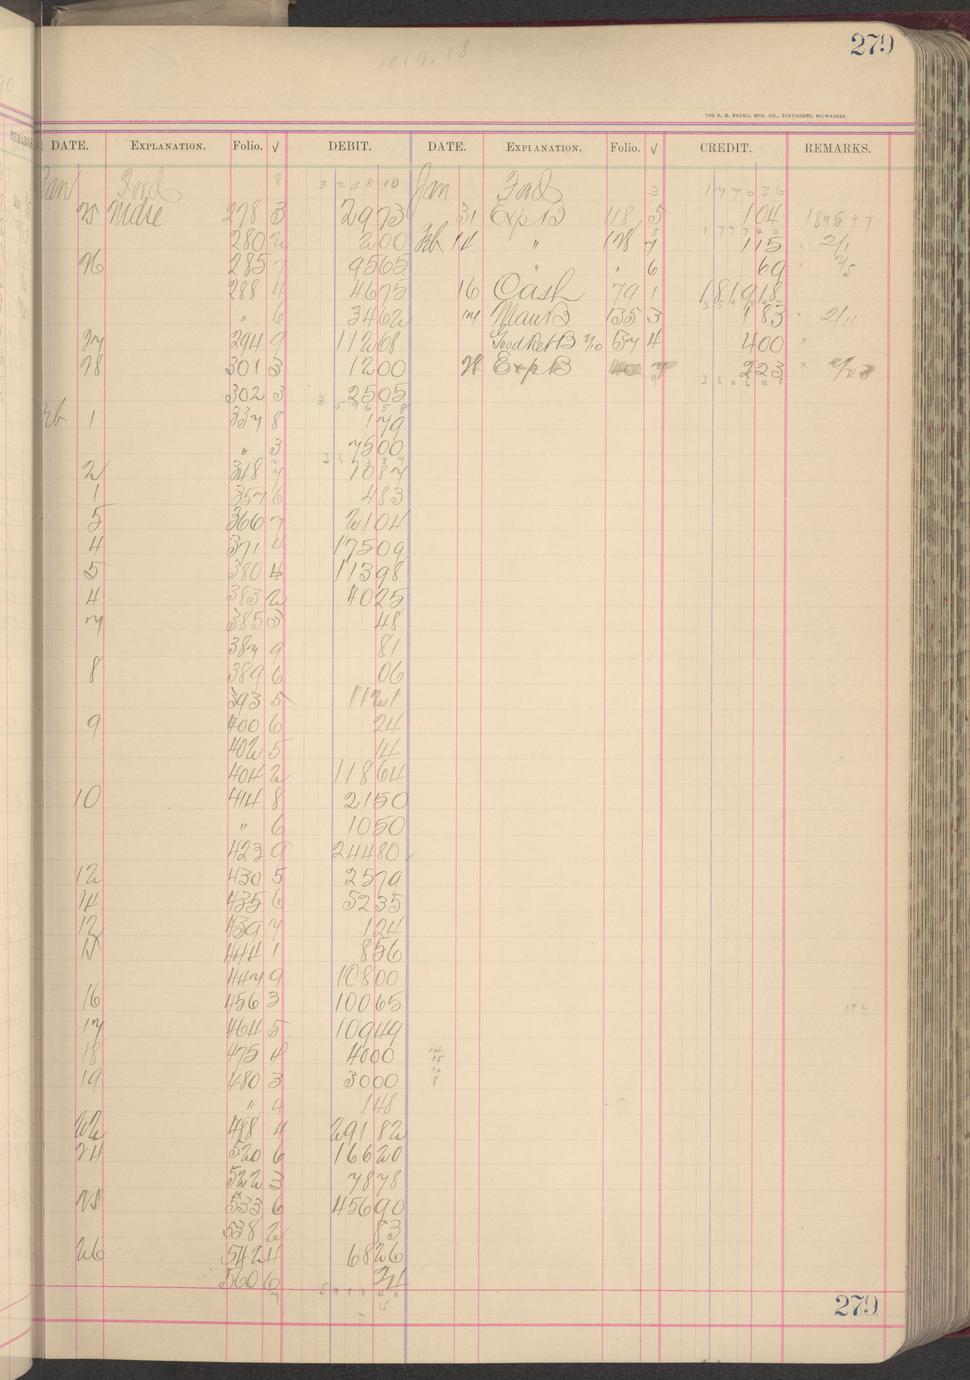 279
THE H. G. RAZALL MFG. CO., STATIONERS, MILWAUKEE.
DATE. EXPLANATION. Folio. √ DEBIT. DATE. EXPLANATION. Folio. √ CREDIT. REMARKS.
Jan Ford 8 3 2 3 8 10 Jan Ford 3 1 7 7 6 3 6
25 Mdse 278 3 2973 31 Exp B 118 5 104 1895 97
280 2 200 Feb 14 " 128 7 115 2/1
26 285 7 9565 " " 6 69 2/5
288 4 4675 16 Cash 79 1 181918
" 6 3462 135 3 183 2/11
27 294 9 11208 637 4 400
28 301 3 1200 28 Exp B 40 7 223
302 3 2505
Feb 1 337 8 179
" 3 7500
2 348 7 1087
1 357 6 483
5 366 7 2104
4 371 4 17509
5 380 4 11398
4 383 2 4025
7 385 3 48
387 9 81
8 389 6 06
393 5 1121
9 400 6 24
402 5 14
404 2 11864
10 414 8 2150
" 6 1050
423 9 24480
12 430 5 2579
14 435 6 5235
12 439 7 124
444 1 856
447 9 10800
16 456 3 10065
17 464 5 10949
18 475 4 4000
19 480 3 3000
" 4 148
22 488 4 29182
24 520 6 16620
522 3 7878
25 533 6 45690
538 2 83
26 542 4 6826
560 6 34
279